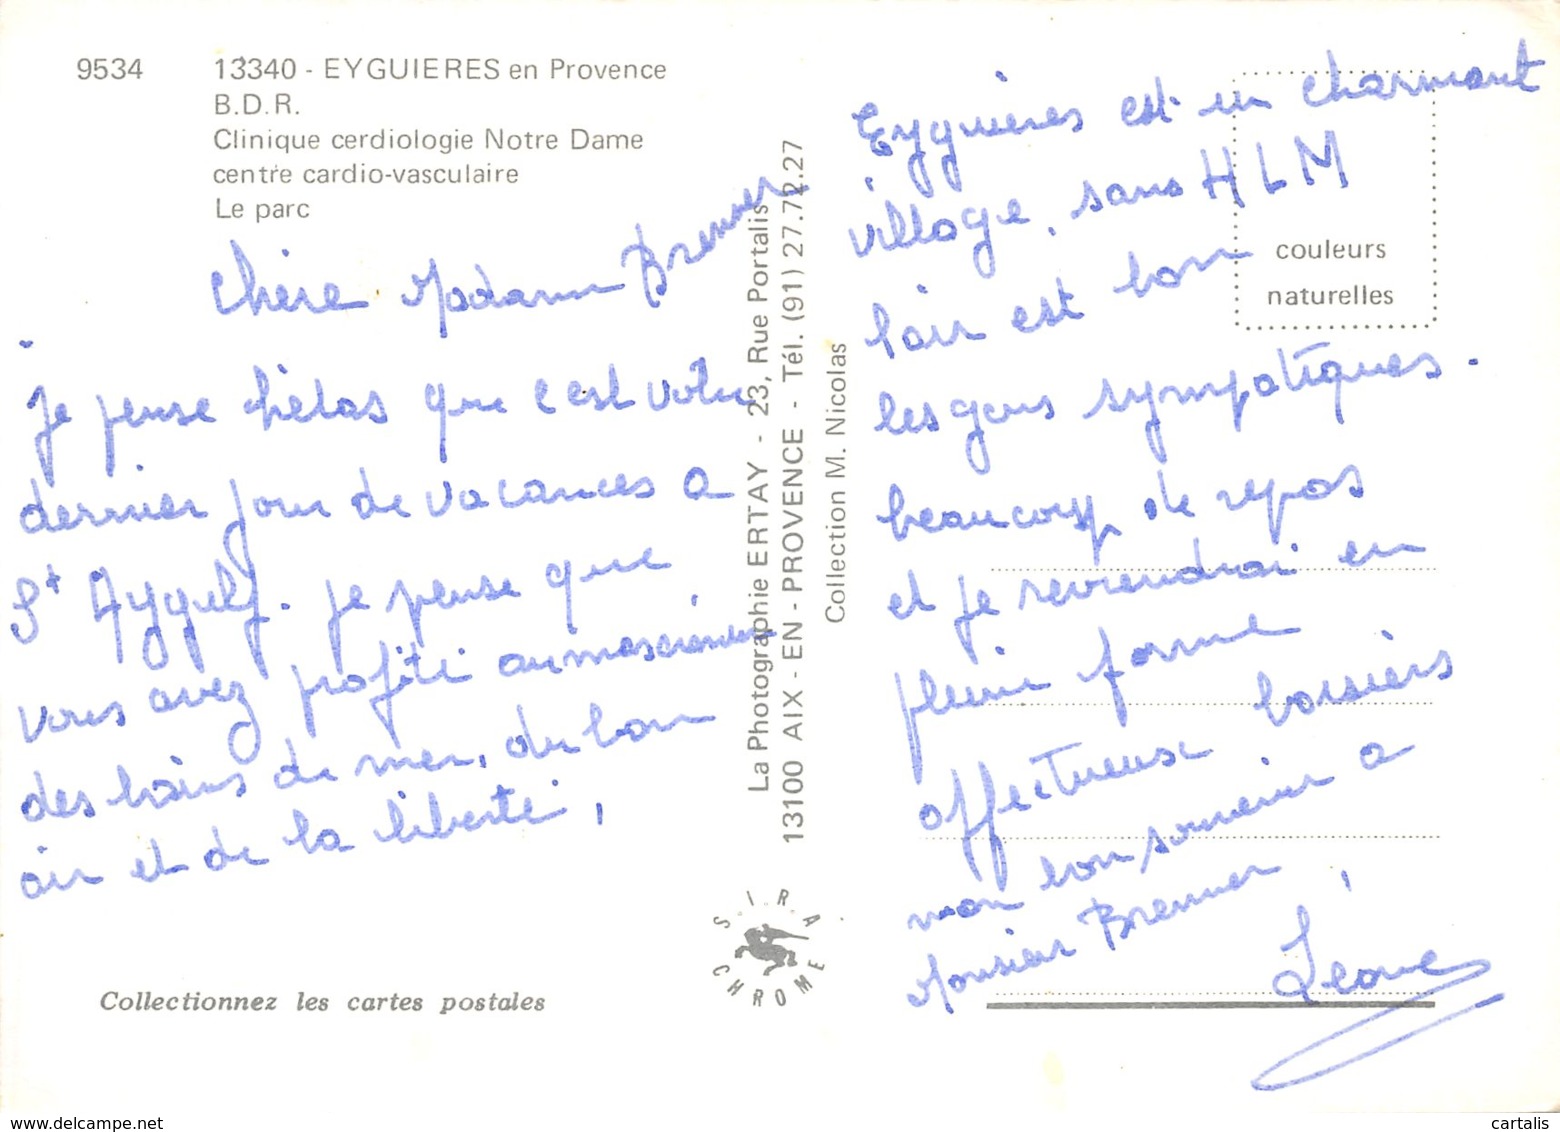 9534 13340 - EYGUIERES en Provence
B.D.R.
Clinique cerdiologie Notre Dame
centre cardio-vasculaire
Le parc
Chère Madame Brenner
Je pense hélas que c'est votre
dernier jour de vacances a
St Aygulf. je pense que
vous avez profité au maximum
des bains de mer, du bon
air et de la liberté,
Collectionnez les cartes postales
La Photographie ERTAY - 23, Rue Portalis
13100 AIX - EN - PROVENCE - Tél. (91) 27.72.27
Collection M. Nicolas
S.I.R.A
CHROME
couleurs
naturelles
Eyguières est un charmant
village, sans HLM
l'air est bon
les gens sympatiques.
beaucoup de repos
et je reviendrai en
pleine forme
affectueux baisers
mon bon souvenir a
Monsieur Brenner,
Léone
cartalis